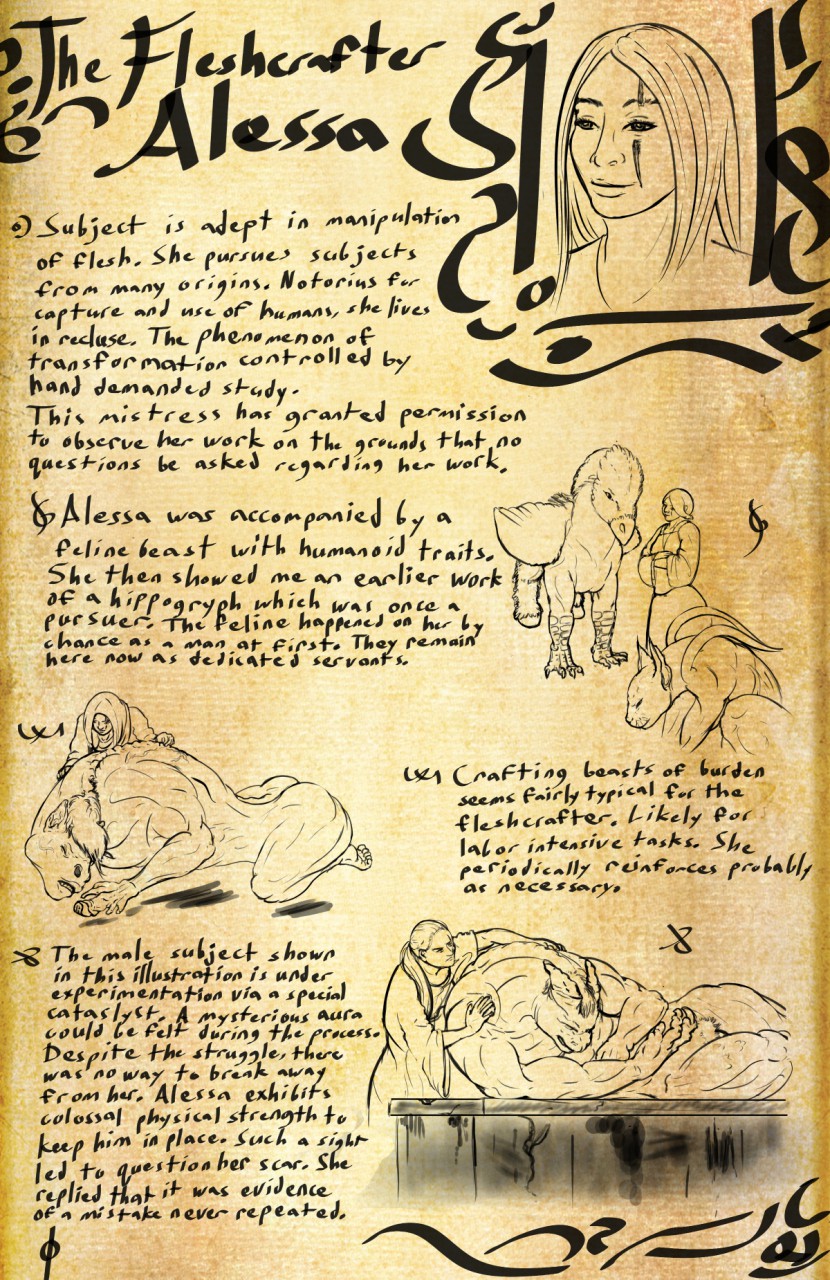 The Fleshcrafter
Alessa
Subject is adept in manipulation
of flesh. She pursues subjects
from many origins. Notorius for
capture and use of humans, she lives
in recluse. The phenomenon of
transformation controlled by
hand demanded study.
This mistress has granted permission
to observe her work on the grounds that no
questions be asked regarding her work.
Alessa was accompanied by a
feline beast with humanoid traits.
She then showed me an earlier work
of a hippogryph which was once a
pursuer. The feline happened on her by
chance as a man at first. They remain
here now as dedicated servants.
Crafting beasts of burden
seems fairly typical for the
fleshcrafter. Likely for
labor intensive tasks. She
periodically reinforces probably
as necessary.
The male subject shown
in this illustration is under
experimentation via a special
cataslyst. A mysterious aura
could be felt during the process.
Despite the struggle, there
was no way to break away
from her. Alessa exhibits
colossal physical strength to
keep him in place. Such a sight
led to question her scar. She
replied that it was evidence
of a mistake never repeated.